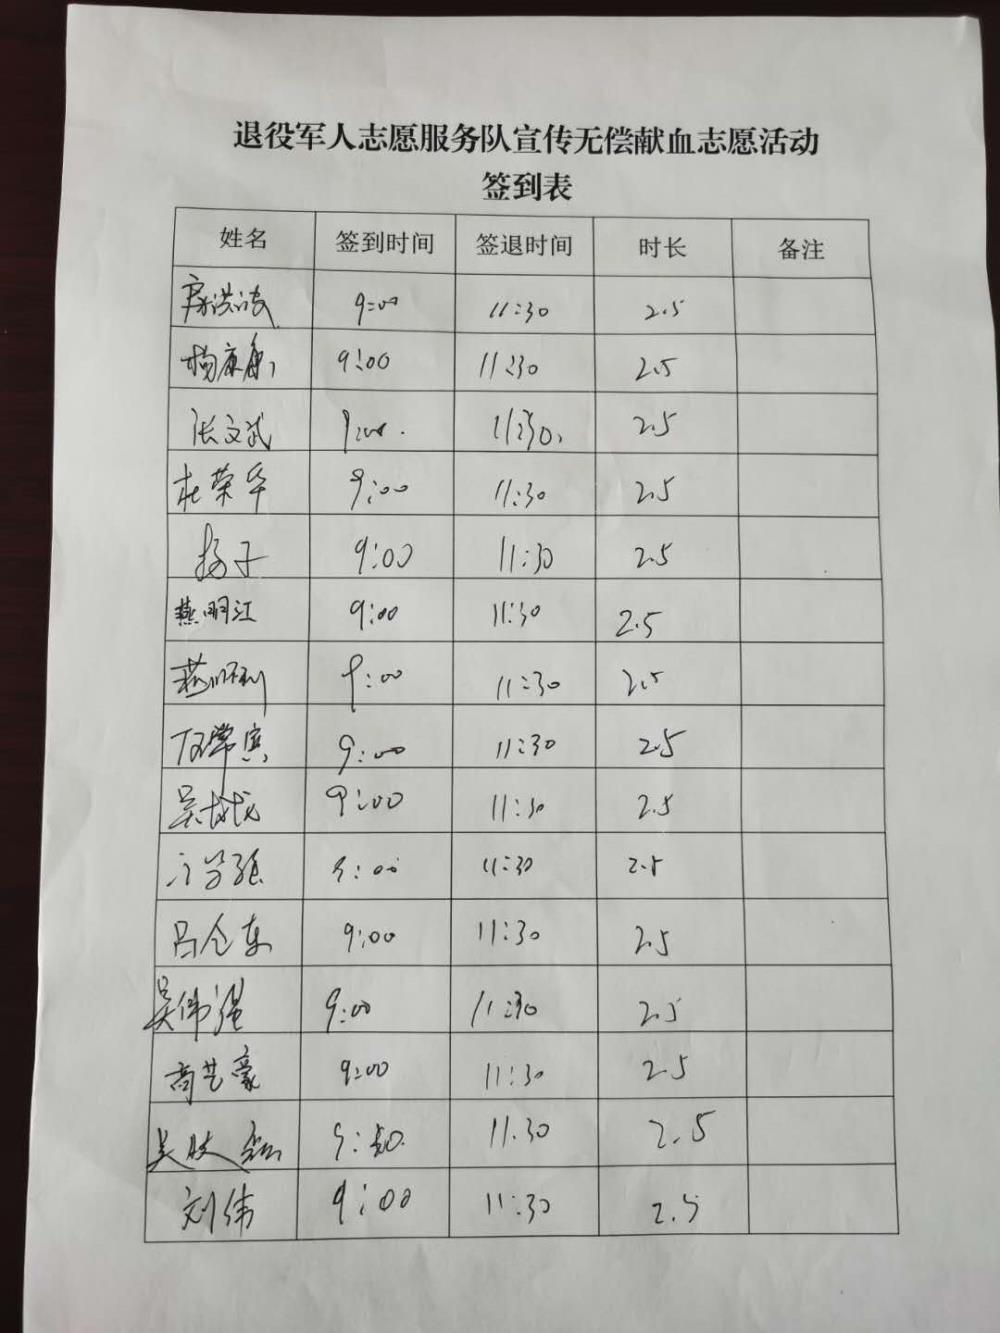 退役军人志愿服务队宣传无偿献血志愿活动
签到表
姓名 签到时间 签退时间 时长 备注
9:00 11:30 2.5
杨康康 9:00 11:30 2.5
张文武 9:00. 11:30, 2.5
杜荣华 9:00 11:30 2.5
杨子 9:00 11:30 2.5
燕明江 9:00 11:30 2.5
9:00 11:30 2.5
9:00 11:30 2.5
吴 9:00 11:30 2.5
9:00 11:30 2.5
吕仓东 9:00 11:30 2.5
吴伟强 9:00 11:30 2.5
高艺豪 9:00 11:30 2.5
吴 11.30 2.5
刘伟 9:00 11:30 2.5